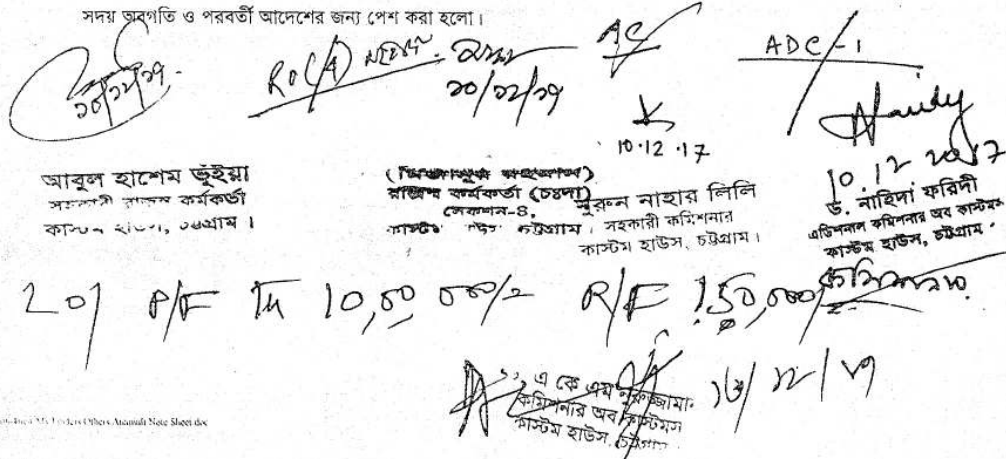 সদয় অবগতি ও পরবর্তী আদেশের জন্য পেশ করা হলো।
AC
ADC-1
১০/১২/১৭
১০/১২/১৭
10.12.17
10.12.2017
আবুল হাশেম ভূঁইয়া
সহকারী রাজস্ব কর্মকর্তা
কাস্টম হাউস, চট্টগ্রাম।
রাজস্ব কর্মকর্তা (চঃদাঃ)
সেকশন-৪,
কাস্টম হাউস চট্টগ্রাম।
নুরুন নাহার লিলি
সহকারী কমিশনার
কাস্টম হাউস, চট্টগ্রাম।
ড. নাহিদা ফরিদী
এডিশনাল কমিশনার অব কাস্টমস
কাস্টম হাউস, চট্টগ্রাম
P/F 10,00,000/= R/F 1,50,000/=
এ কে এম নুরুজ্জামান
কমিশনার অব কাস্টমস
কাস্টম হাউস, চট্টগ্রাম
Note Sheet.doc